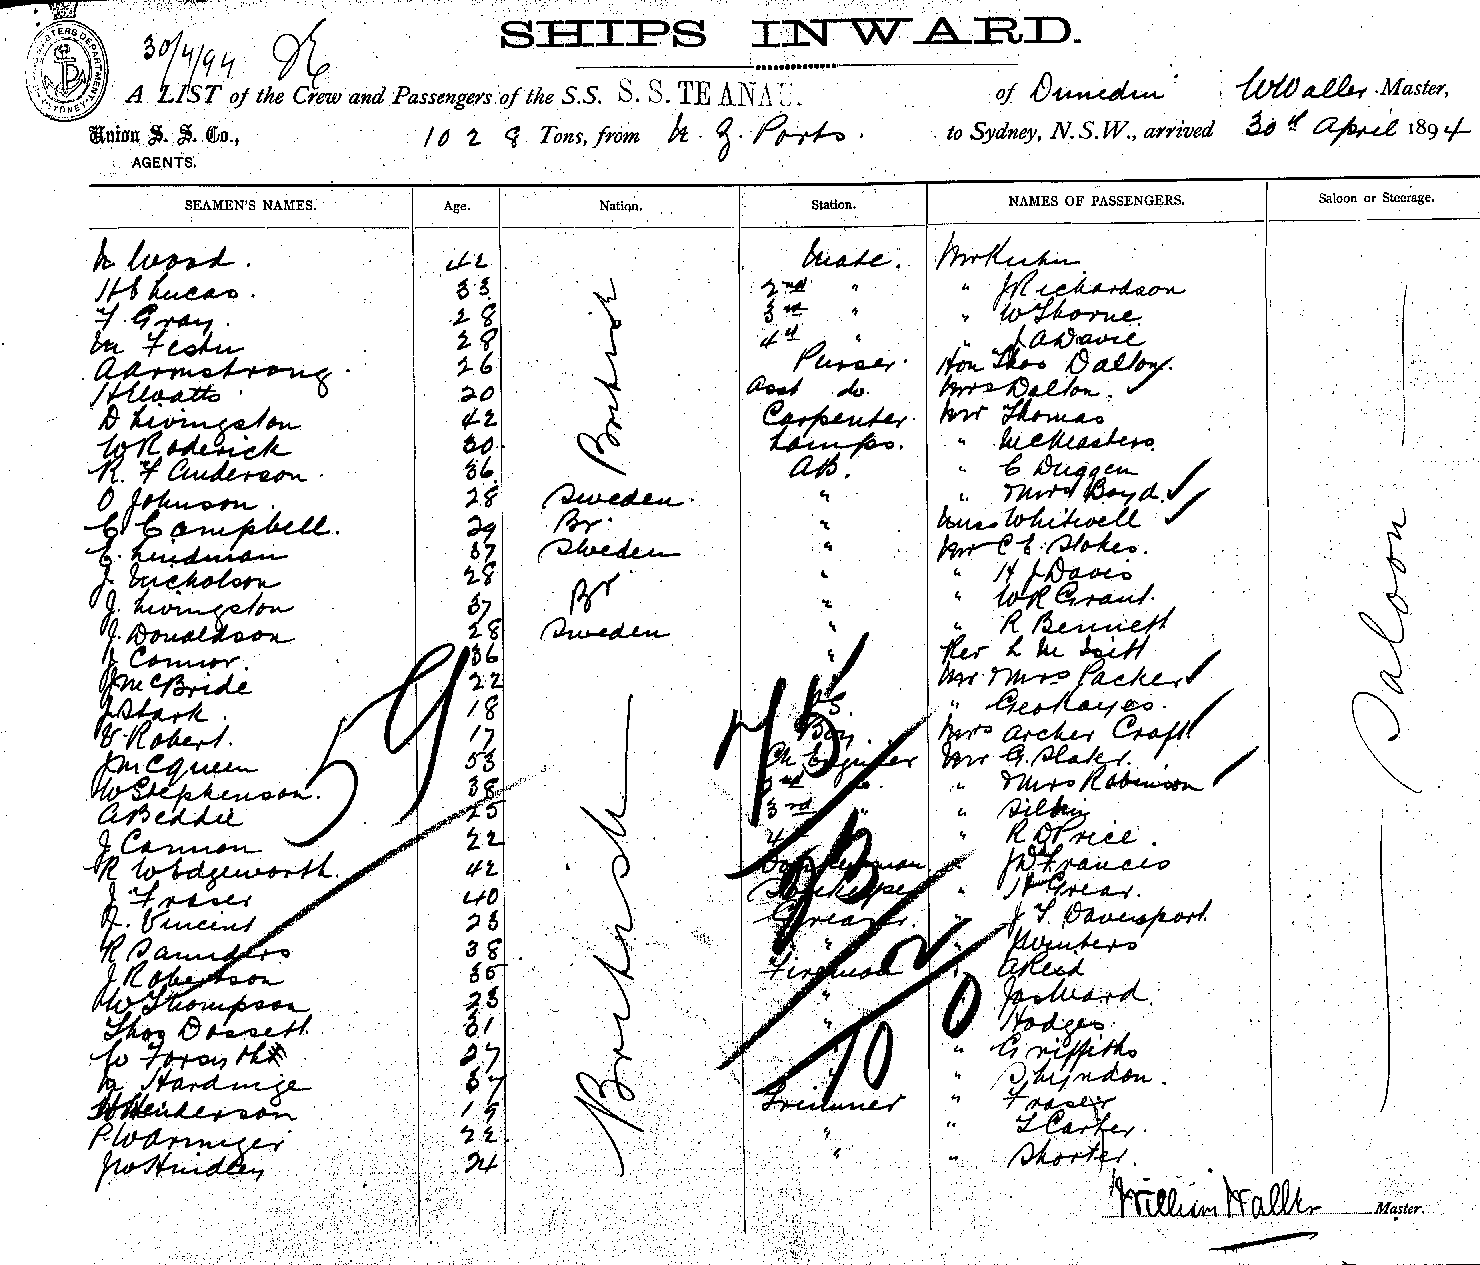 SHIPS INWARD.
30/4/94
A LIST of the Crew and Passengers of the S.S. S.S. TE ANAU. of Dunedin W Waller Master,
Union S. S. Co., 1028 Tons, from N. Z. Ports. to Sydney, N.S.W., arrived 30th April 1894
AGENTS.
SEAMEN'S NAMES. Age. Nation. Station. NAMES OF PASSENGERS. Saloon or Steerage.
Wood. 42 British Mate. Mr Kuhn Saloon
H E Lucas. 33 2nd " " J Richardson
F. Gray. 28 3rd " " W Thorne
28 4th " " J A Davie
A Armstrong. 26 Purser. Hon Thos Dalton.
H Watts 20 Asst do. Mrs Dalton.
D Livingston 42 Carpenter. Mr Thomas
W Roderick 30 Lamps. " McMasters
R. F Anderson. 36 AB. " C Duggen
O Johnson. 28 Sweden. " " & Mrs Boyd.
C Campbell. 29 Br. " Miss Whitwell
C. Lindman 37 Sweden " Mr C E. Stokes.
J. Nicholson 28 " " H J Davis
J. Livingston 37 Br " " W R Grant.
J. Donaldson 28 Sweden " " R Bennett
J Connor. 36 " Rev L M Isitt
J McBride 22 Mr & Mrs Packer
J Stark. 18 OS. " Geo Hayes.
Robert. 17 Boy. Mrs Archer Craft
J McQueen 53 British Ch Engineer Mr G. Slater.
W Stephenson. 38 2nd " & Mrs Robinson
A Beddie 25 3rd "
J Cannon 22 4 " R D Price.
R W Edgeworth. 42 Donkeyman " Francis
J Fraser 40 Storekeeper " H Grear.
J. Vincent 23 Greaser. " J T. Davenport
R Saunders 38 " " Winters
J Robertson 35 Fireman " A Reid
W Thompson 23 " Jas Ward.
Thos Dossett 31 " Hodges
W Forsythe 27 " Griffiths
Hardinge 37 " Lyndon.
Henderson 19 Trimmer " Fraser
P. W Arminger 22 " " T Carter.
J W Hindley 24 " " Shorter.
59
75
2
0
10
William Waller Master.